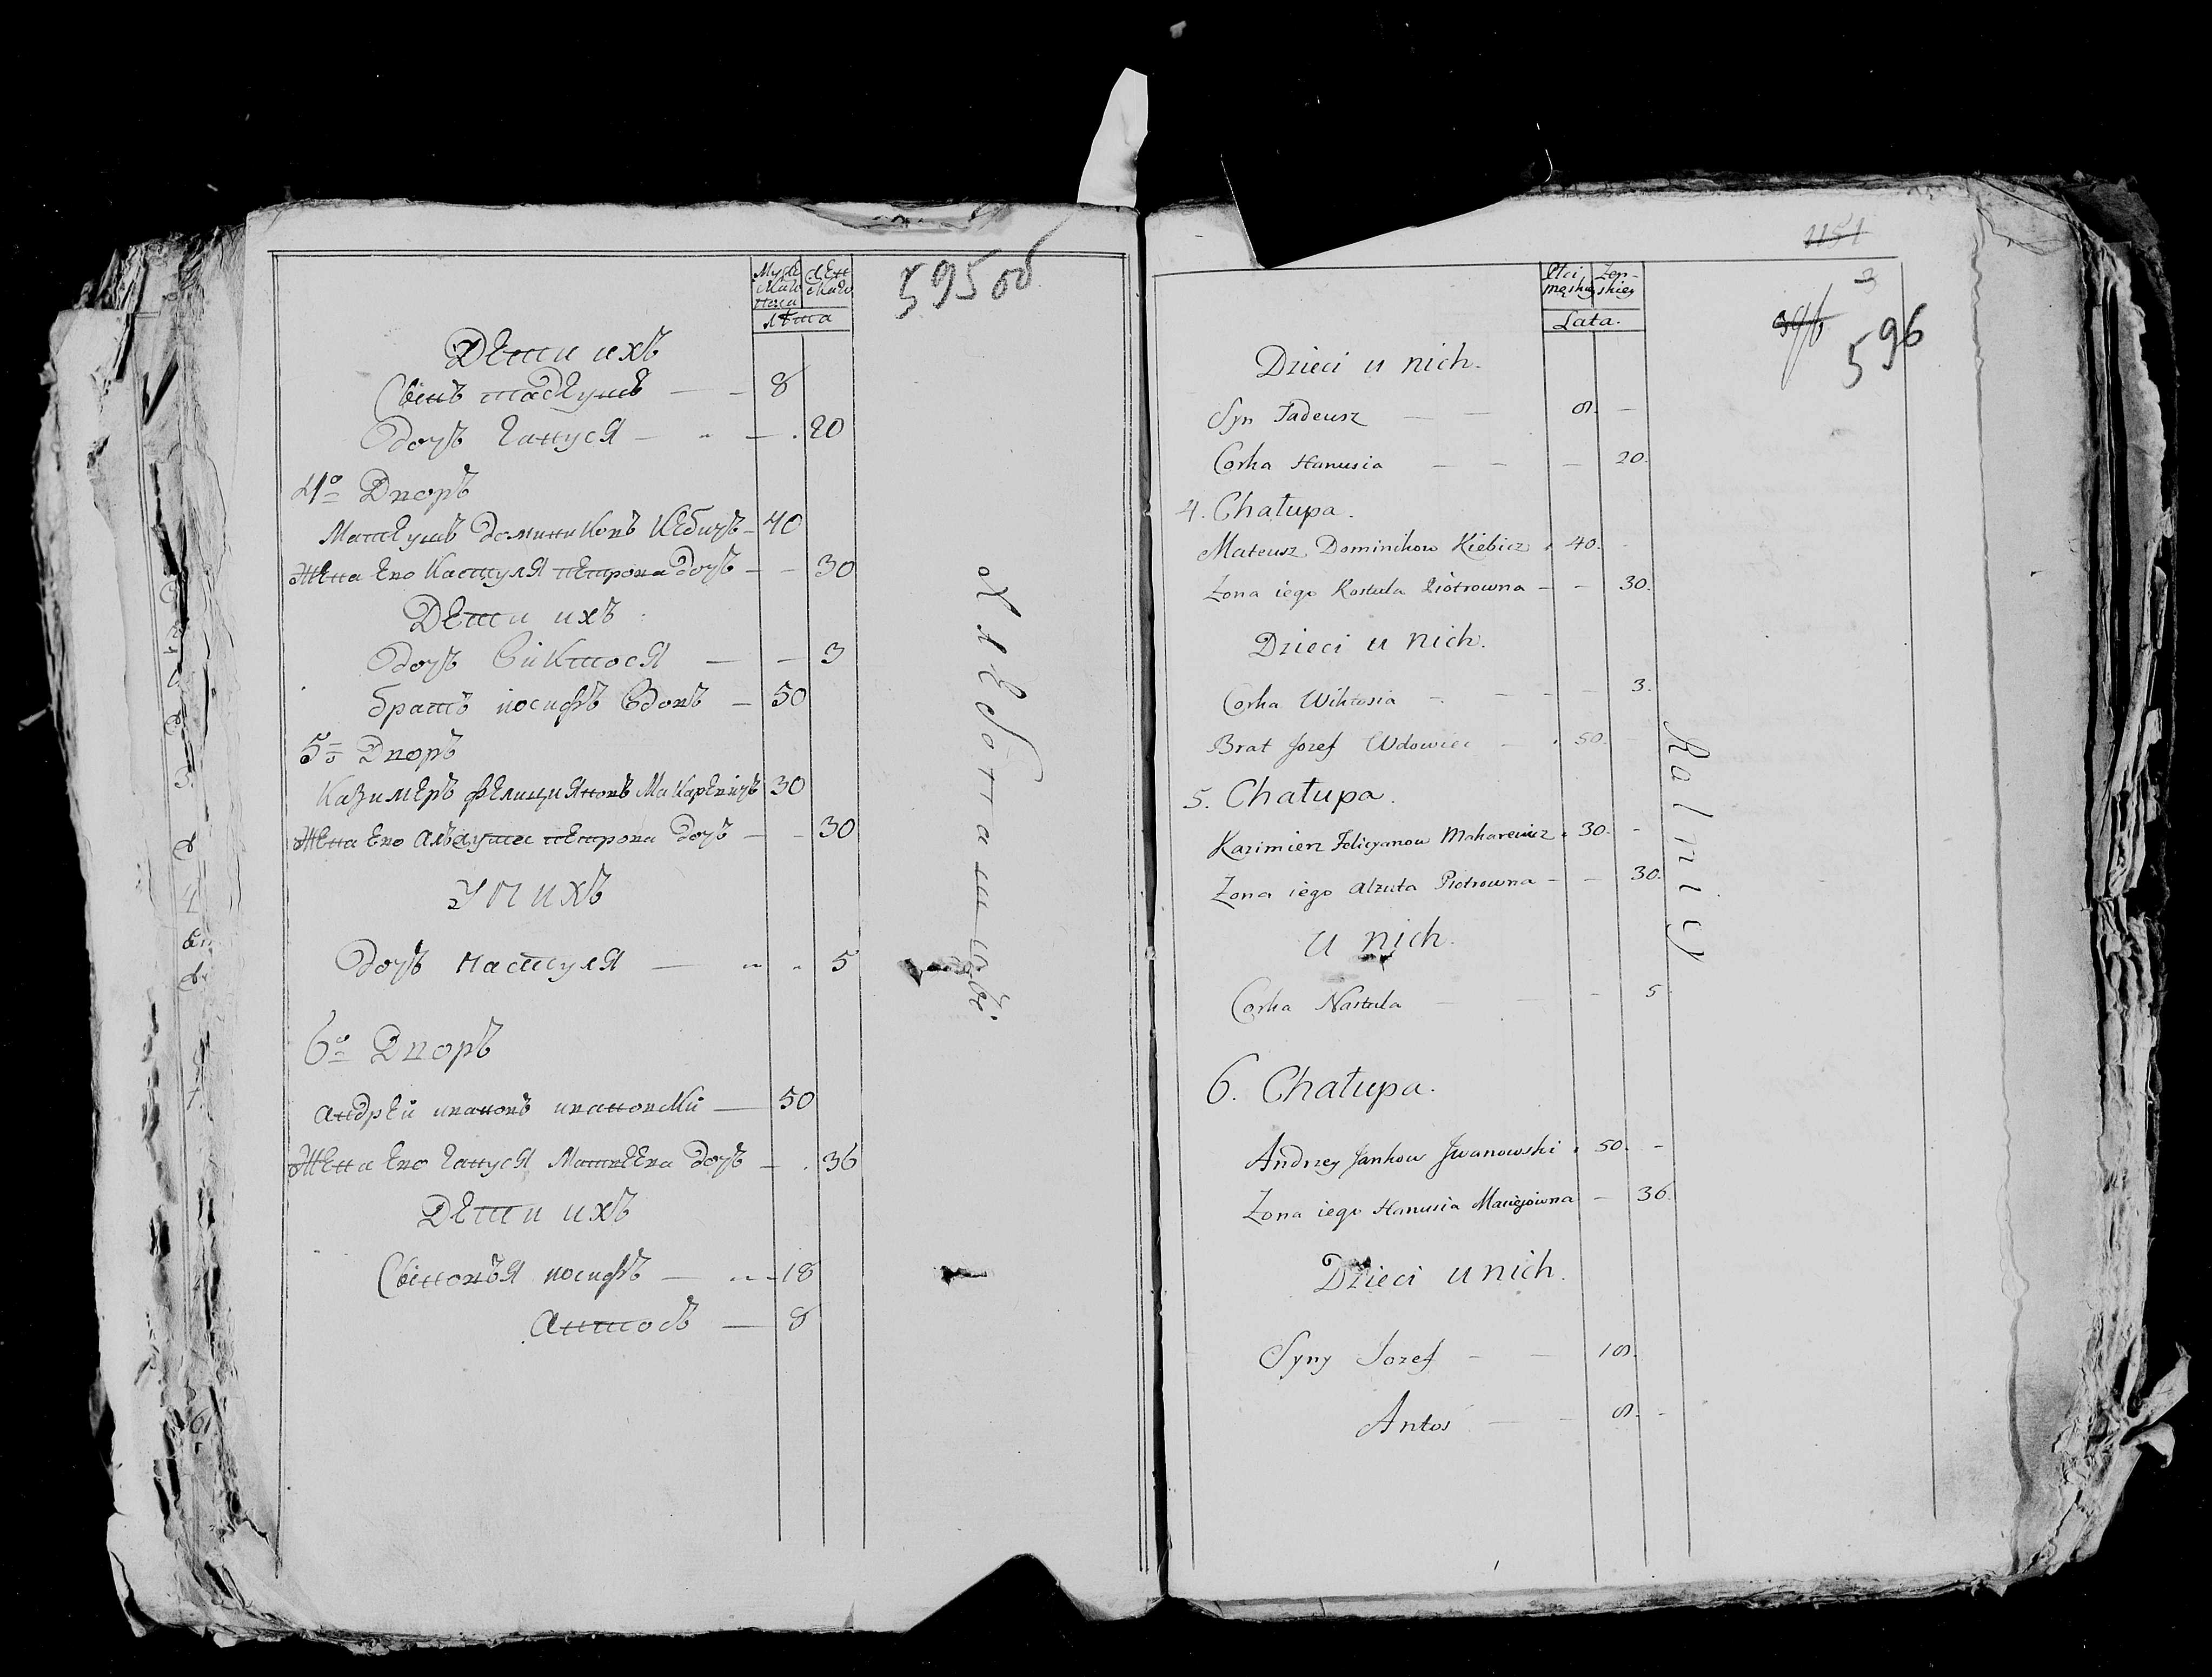 595 об
Муже
ска
пола
Жен
ска
Лѣта
Дети ихъ
Сынъ тадеушъ — — 8
дочь Гануся — „ — . 20
4о Дворъ
Матеушъ доминиковъ Кебичъ — 40
Жена Его Кастуля петрова дочь — — 30
Дети ихъ
дочь Виктося — — 3
братъ иосифъ Вдовъ — 50
5о Дворъ
Казимеръ фелициановъ Макаревичъ 30
Жена Его петрова дочь — — 30
У нихъ
дочь настуля — „ „ 5
6о Дворъ
андрей ивановъ ивановски — 50
Жена Его Гануся Матвеева дочь — . 36
Дети ихъ
Сыновья иосифъ — „ — 18
антось — 8
1151
596
Płci męskiey
Żeń-skiey
Lata.
Dzieci u nich.
Syn Tadeusz — — 8. —
Corka Hanusia — — — 20.
4. Chałupa.
Mateusz Dominikow Kiebicz . 40. -
Zona iego Kostula Piotrowna — — 30.
Dzieci u nich.
Corka Wiktosia - — - — 3.
Brat Jozef Wdowiec — . 50. -
5. Chałupa.
Kazimierz Felicyanow Makarewicz . 30. -
Zona iego Alzuta Piotrowna — — 30.
u nich.
Corka Nastula — — - 5
6. Chałupa.
Andrzey Jankow Jwanowski . 50. -
Zona iego Hanusia Maciejowna — 36.
Dzieci u nich.
Syny Jozef - — 18.
Antoś — — 8. -
Rolnicy